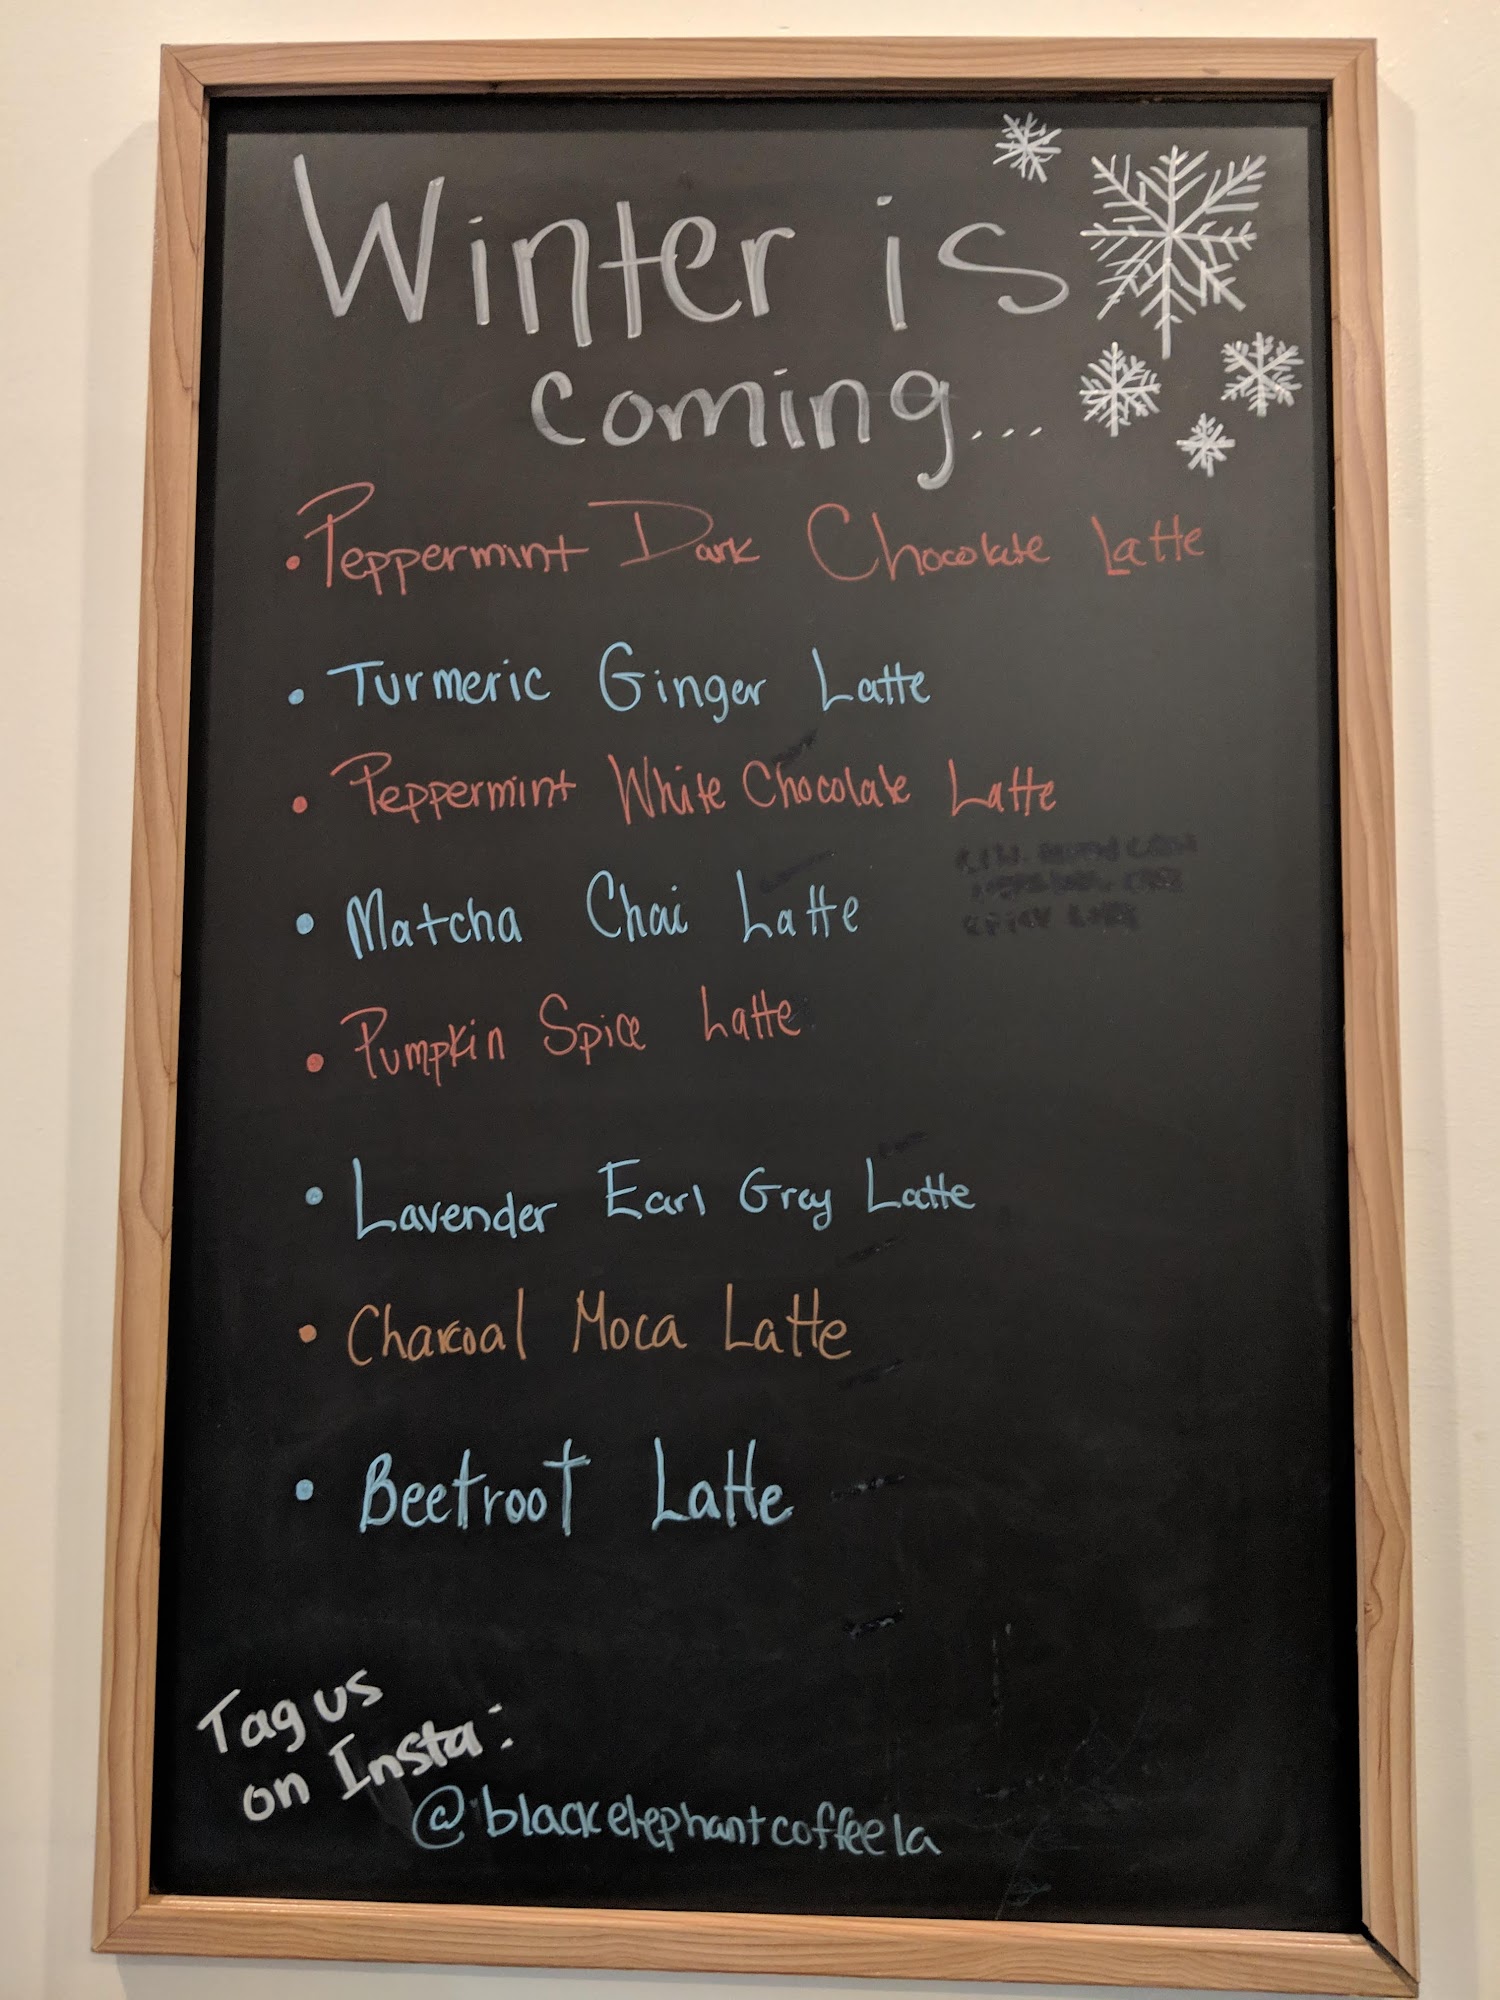 Winter is
coming...
• Peppermint Dark Chocolate Latte
• Turmeric Ginger Latte
• Peppermint White Chocolate Latte
• Matcha Chai Latte
• Pumpkin Spice Latte
• Lavender Earl Grey Latte
• Charcoal Moca Latte
• Beetroot Latte
Tag us
on Insta:
@blackelephantcoffeela